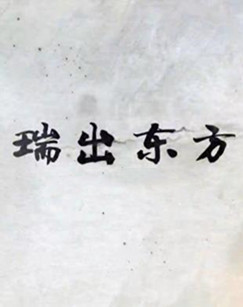 瑞出东方